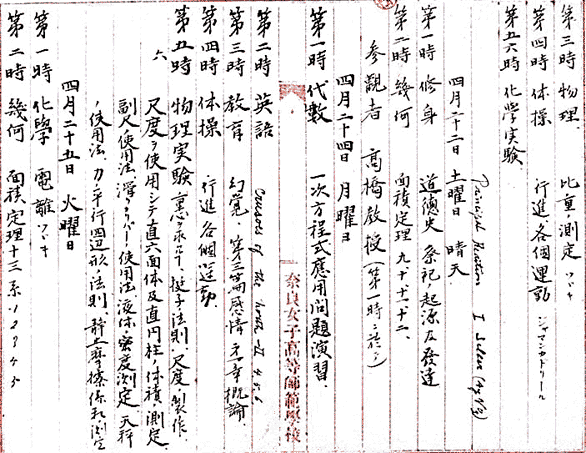 第三時 物理 比重ノ測定 ツヾキ
第四時 体操 行進、各個運動
第五六時 化学実験
四月二十二日 土曜日 晴天
第一時 修身 道徳史 祭祀ノ起源及発達
第二時 幾何 面積定理 九、十、十一、十二、
参観者 高橋教授(第一時ニ於テ)
四月二十四日 月曜日
第一時 代数 一次方程式応用問題演習、
奈良女子高等師範学校
第二時 英語 of the
第三時 教育 幻覚、第三篇感情 第一章概論
第四時 体操 行進各個運動
第五時 物理実験 梃子ノ法則、尺度ノ製作、
六
尺度ヲ使用シテ直六面体及直円柱ノ体積ノ測定
副尺ノ使用法 使用法 液体ノ密度測定、天秤
ノ使用法、力ノ平行四辺形ノ法則、静止摩擦係数ノ測定
四月二十五日 火曜日
第一時 化学 電離ツヾキ
第二時 幾何 面積定理十三 系 1 2 3 4 5